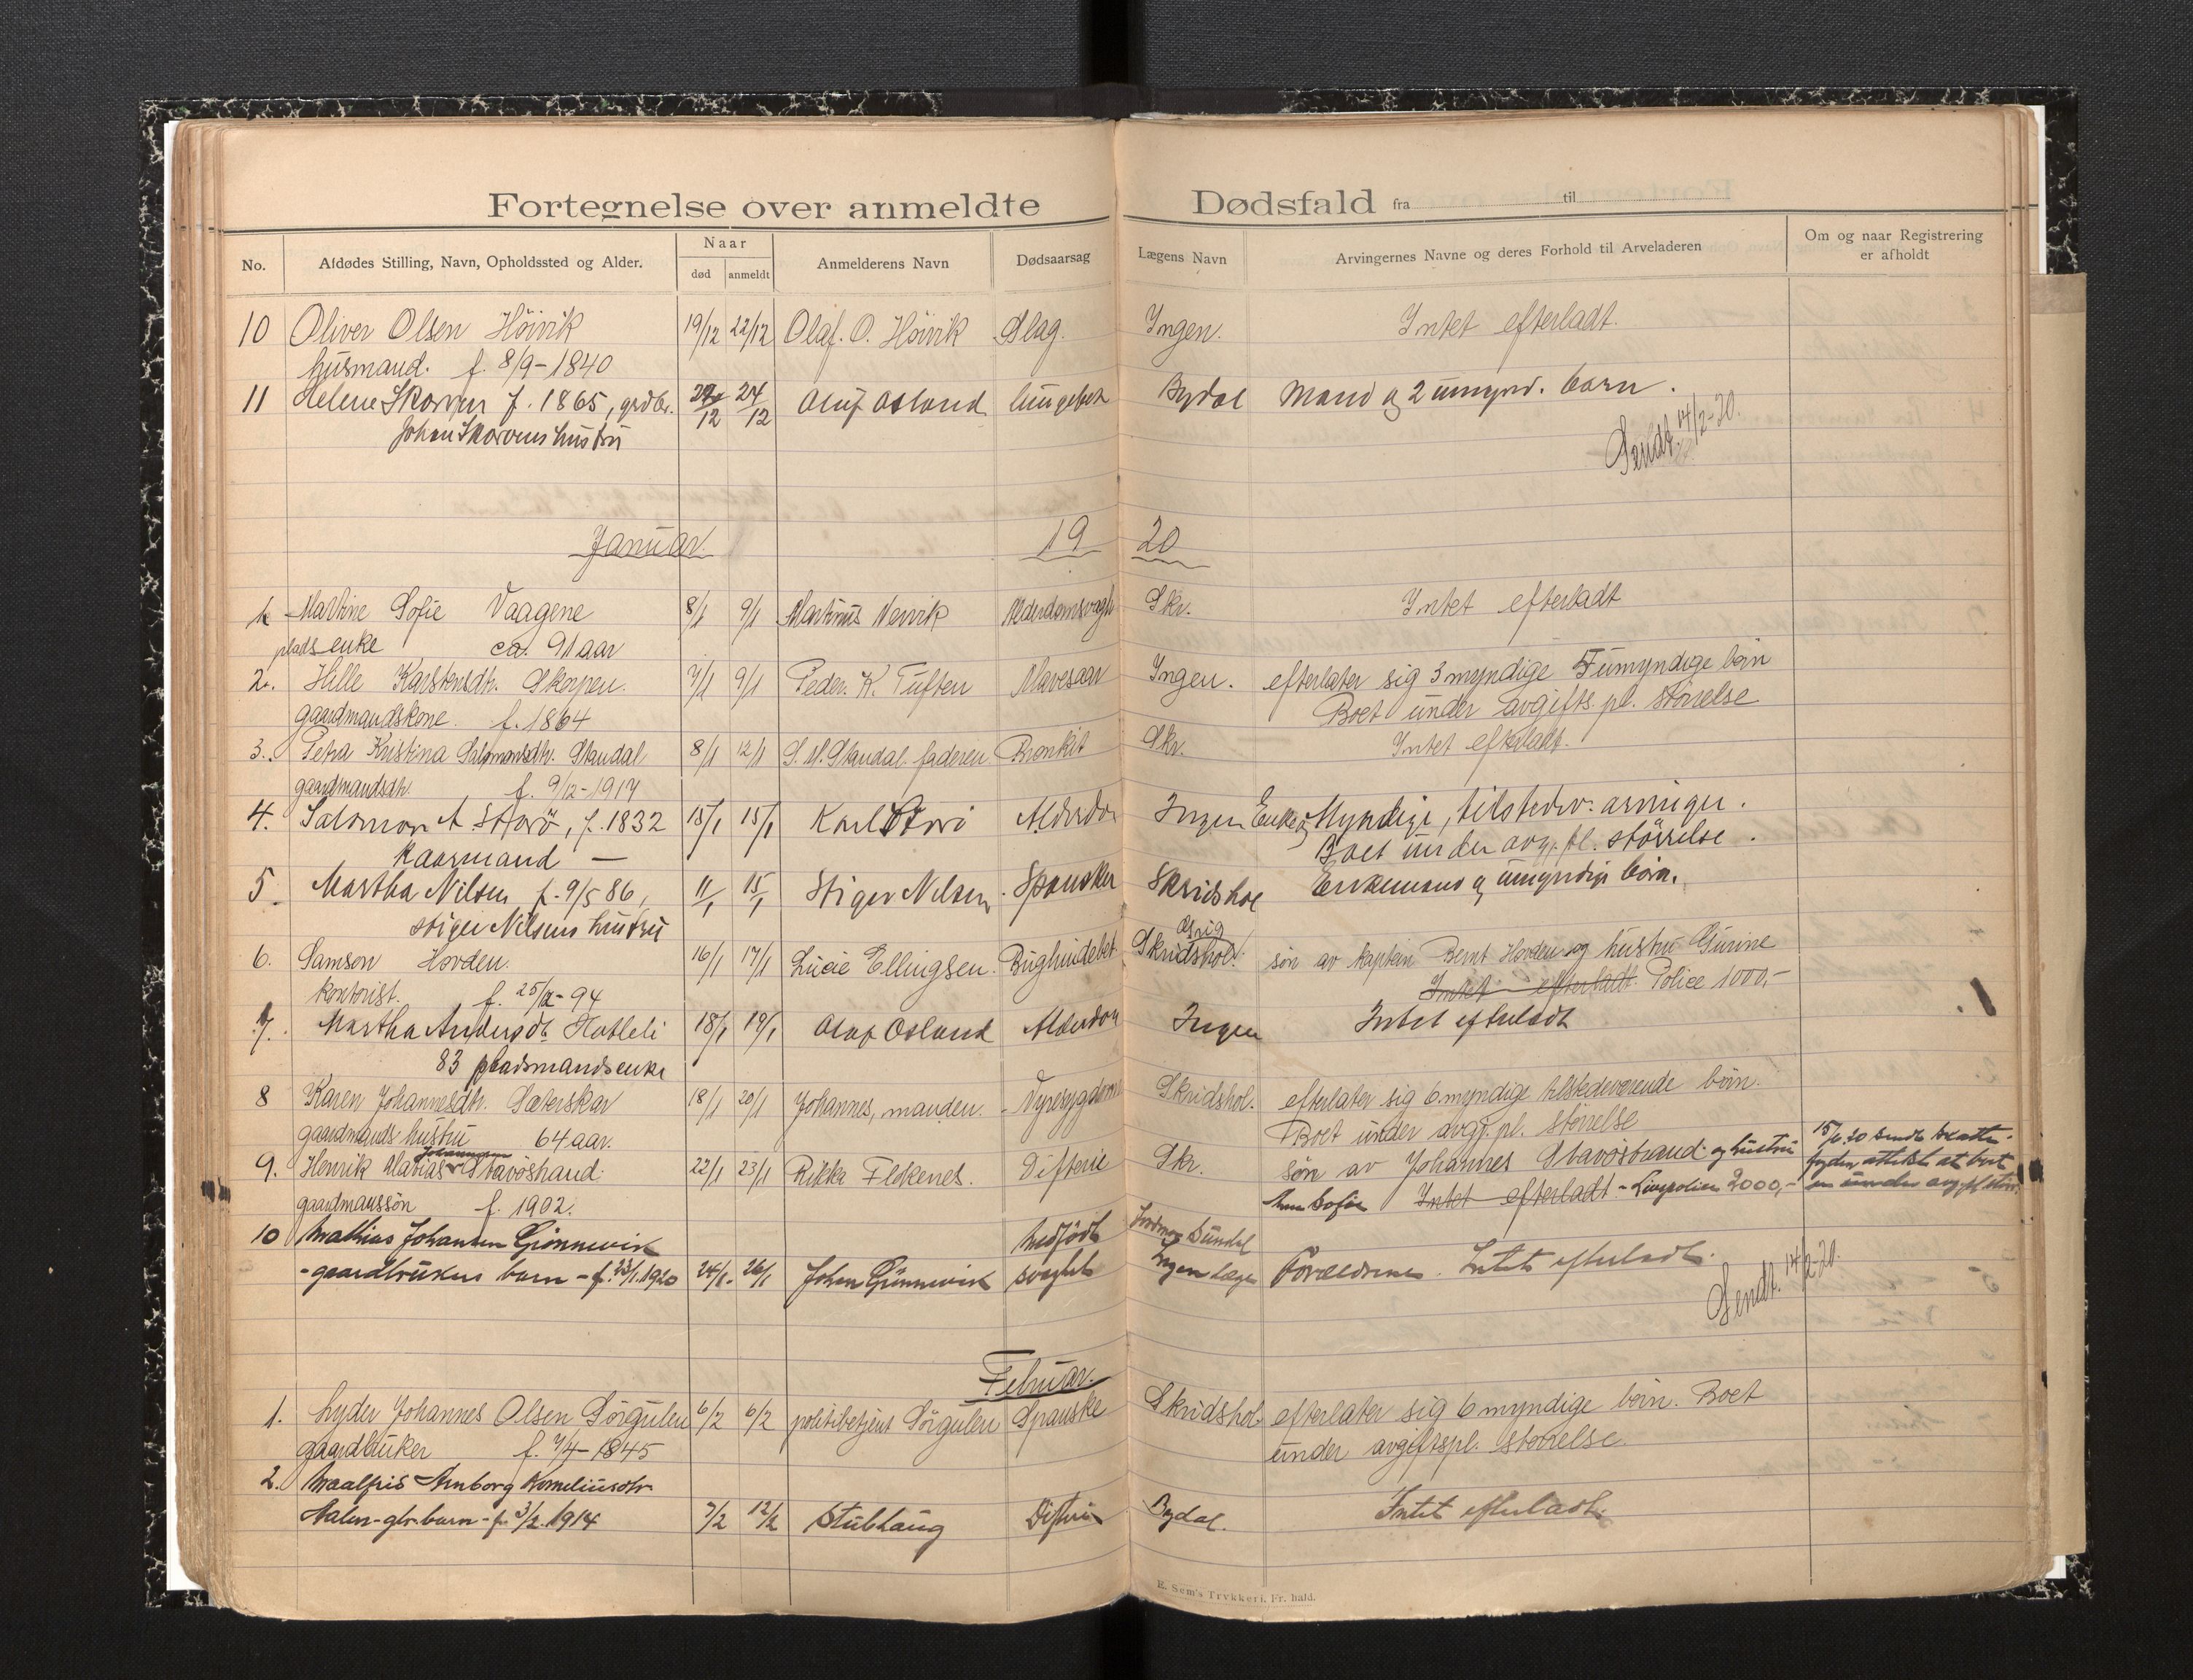 Fortegnelse over anmeldte Dødsfald fra til
No. Afdødes Stilling, Navn, Opholdssted og Alder. Naar død anmeldt Anmelderens Navn Dødsaarsag Lægens Navn Arvingernes Navne og deres Forhold til Arveladeren Om og naar Registrering er afholdt
10 Oliver Olsen Höivik 19/12 22/12 Olaf. O. Höivik Slag. Ingen. Intet efterladt.
husmand. f. 8/9-1840
11 Helene Skorven f. 1865, grdbr. 24/12 Oluf Osland Bydal Mand og 2 umynd. barn.
Johan Skorvens hustru
Sendt 14/2-20.
Januar 1920
1. Martine Sofie Vaagene 8/1 9/1 Martinus Nervik Alderdomsvagh Skr. Intet efterladt
plads enke ca. 91 aar
2. Hille Karstensdtr. Skorpen. 7/1 9/1 Peder. K. Tuften Mavesaar Ingen. efterlater sig 3 myndige 5 umyndige börn
gaardmandskone. f. 1864 Boet under avgifts. pl. störrelse
3. Petra Kristina Salomonsdtr. Standal 8/1 12/1 S. M. Standal. faderen Bronkit Skr. Intet efterladt.
gaardmandsdtr. f. 9/12-1917
4. Salomon A. Storö, f. 1832 15/1 15/1 Karl Storö Alderdom Ingen Enke og Myndige, tilstedev. arvinger.
kaarmand — Boet under avg. pl. störrelse.
5. Martha Nilsen f. 9/5 86, 11/1 15/1 Stiger Nilsen. Spansken Skridshol Enkemand og umyndige börn.
stiger Nilsens hustru
6. Samson Hovden. 16/1 17/1 Lucie Ellingsen. Bughindebet. Skridshol. sön av kaptein Bernt Hovden og hustru Gurine
kontorist. f. 25/12-94 Intet efterladt. Police 1000,-
7. Martha Andersdt. Hatleli 18/1 19/1 Oluf Osland Alderdom Ingen Intet efterladt
83 pladsmandsenke
8 Karen Johannesdtr. Sæterskar 18/1 20/1 Johannes, manden. Nyresygdom Skridshol. efterlater sig 6 myndige tilstedeværende börn.
gaardmands hustru 64 aar. Boet under avgf. pl. störrelse
9. Henrik Matias Johannesen Stavöstrand. 22/1 23/1 Rikka Eldkenes. Difterie Skr. sön av Johannes Stavöstrand og hustru
gaardmanssön f. 1902. Sofie Intet efterladt - Livspolice 2000,-
10 Mathias Johansen Grönnevik medfödt
-gaardbrukers barn - f. 23/1.1920 24/1. 26/1 Johan Grönnevik svaghet Ingen læge Forældrene. Intet efterladt.
Sendt 14/2-20.
Februar.
1. Lyder Johannes Olsen Sörgulen 6/2 6/2 politibetjent Sörgulen Spanske Skridshol. efterlater sig 6 myndige börn. Boet
gaardbruker f. 7/4-1845 under avgiftspl. störrelse.
2. Maalfrid Arnborg Korneliusdtr.
Halen-gbr. barn - f. 3/2. 1914 7/2 12/2 Stubhaug Difteri Bydal. Intet efterladt.
E. Sem's Trykkeri, Fr.hald.